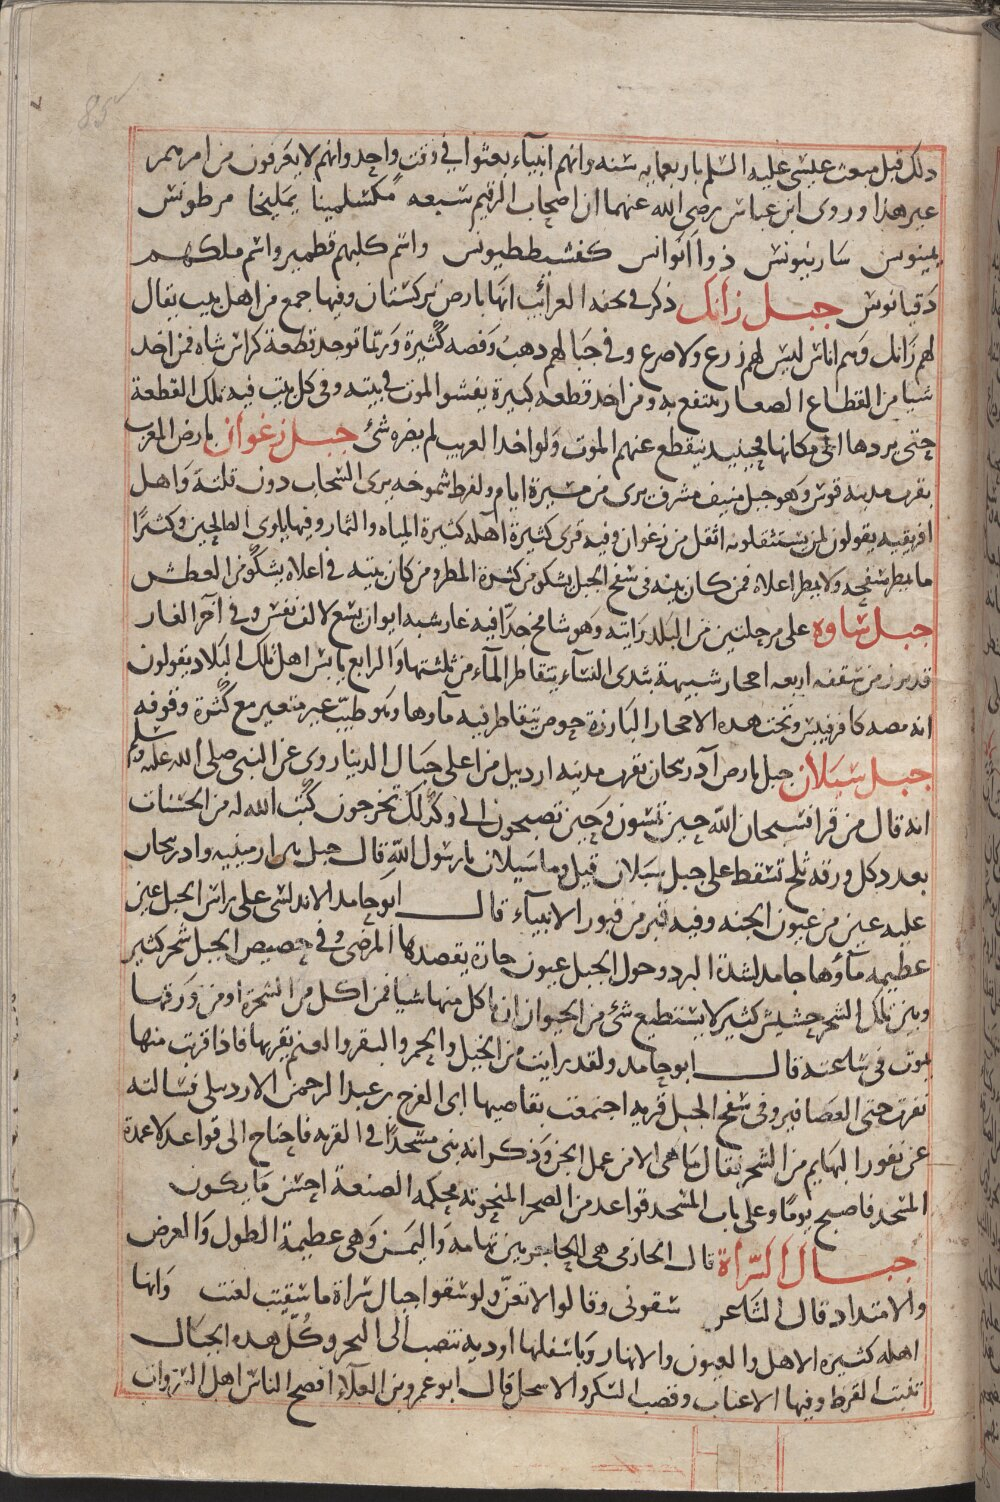 85
ذلك قبل مبعث عيسى عليه السلم باربعمايه سنه وانهم انبياء بعثوا في وقت واحد وانهم لا يعرفون من امرهم
غير هذا وروى ابن عباس رضى الله عنهما ان اصحاب الرقيم سبعه مكسلمينا يمليخا مرطونس
ساربنونس ذوا انوانس كفشططيونس واسم كلبهم قطمير واسم ملكهم
دقيانوس جبل زانك ذكر في تحفه الغرائب انها بارض تركستان وفيها جمع من اهل بيت يقال
لهم زانك وهم اناس ليس لهم زرع ولا ضرع وفي جبالهم ذهب وفضه كثيرة وربما توجد قطعة كراس شاه فمن اخذ
شيا من القطاع الصغار ينتفع به ومن اخذ قطعه كبيرة يفشوا الموت في بيته وفي كل بيت فيه تلك القطعة
حتى يردها الى مكانها فحينيذ ينقطع عنهم الموت ولو اخذ الغريب لم يضره شئ جبل زغوان بارض المغرب
بقرب مدينه تونس وهو جبل منيف مشرف يرى من مسيرة ايام ولفرط شموخه يرى السحاب دون قلته واهل
افريقيه يقولون لمن يستثقلونه اثقل من زغوان وفيه قرى كثيرة آهله كثيرة المياه والثمار وفيها ياوى الصالحين وكثيرا
ما يمطر سفحه ولا يمطر اعلاه فمن كان بيته في سفح الجبل يشكو من كثرة المطر ومن كان بيته في اعلاه يشكو من العطش
جبل ساوه على مرحلتين من البلد رايته وهو شامخ جدا فيه غار شبه ايوان يسع لالف نفس وفي آخر الغار
قد برز من سقفه اربعه احجار شبيهة بثدى النساء يتقاطر الماء من ثلثتها والرابع يابس اهل تلك البلاد يقولون
انه مصه كافر فيبس وتحت هذه الاحجار البارزة حوض يتقاطر فيه مآوها وهو طيب غير متغير مع كثرة وقوفه
جبل سبلان جبل بارض آذربيجان بقرب مدينه اردبيل من اعلى جبال الدنيا روى عن النبى صلى الله عليه وسلم
انه قال من قرا فسبحان الله حين تمسون وحين تصبحون الى وكذلك تخرجون كتب الله له من الحسنات
بعدد كل ورقة ثلج تسقط على جبل سبلان قيل وما سبلان يا رسول الله قال جبل بين ارمينيه واذربيجان
عليه عين من عيون الجنه وفيه قبر من قبور الانبياء قال ابو حامد الاندلسى على راس الجبل عين
عظيمه مآؤها جامد لشدة البرد وحول الجبل عيون حارة يقصدها المرضى وفي حضيض الجبل شجر كثير
وبين تلك الشجر حشيش كثير لا يستطيع شئ من الحيوان ان ياكل منها شيا فمن اكل من الشجرة او من ورقها
يموت في ساعته قال ابو حامد ولقد رايت من الخيل والحمر والبقر والغنم يقربها فاذا قربت منها
نفرت حتى العصافير وفي سفح الجبل قريه اجتمعت بقاضيها ابى الفرج بن عبد الرحمن الاردبيلى فسالته
عن نفور البهايم من الشجر فقال ما هى الا من عمل الجن وذكر انه بنى مسجدا في القريه فاحتاج الى قواعد لاعمدة
المسجد فاصبح يوما وعلى باب المسجد قواعد من الصخر المنحوته محكمه الصنعة احسن ما يكون
جبال السراة قال الحازمى هى الحاجز بين تهامه واليمن وهى عظيمة الطول والعرض
والامتداد قال الشاعر سقونى وقالوا لا تغن ولو سقوا جبال سراة ما سقيت لغنت وانها
اهله كثيره الاهل والعيون والانهار وباسفلها اوديه تنصب الى البحر وكل هذه الجبال
تنبت القرظ وفيها الاعناب وقصب السكر والاسحل قال ابو عمرو بن العلاء افصح الناس اهل السروات